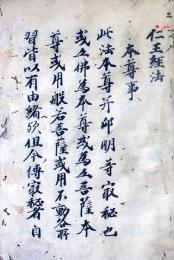 仁王經法
本尊事
此法本尊并印明等寂秘也
或五佛為本尊或為五菩薩本
尊或用般若菩薩或用不動各所
習皆以有由緒歟但今傳寂秘者自